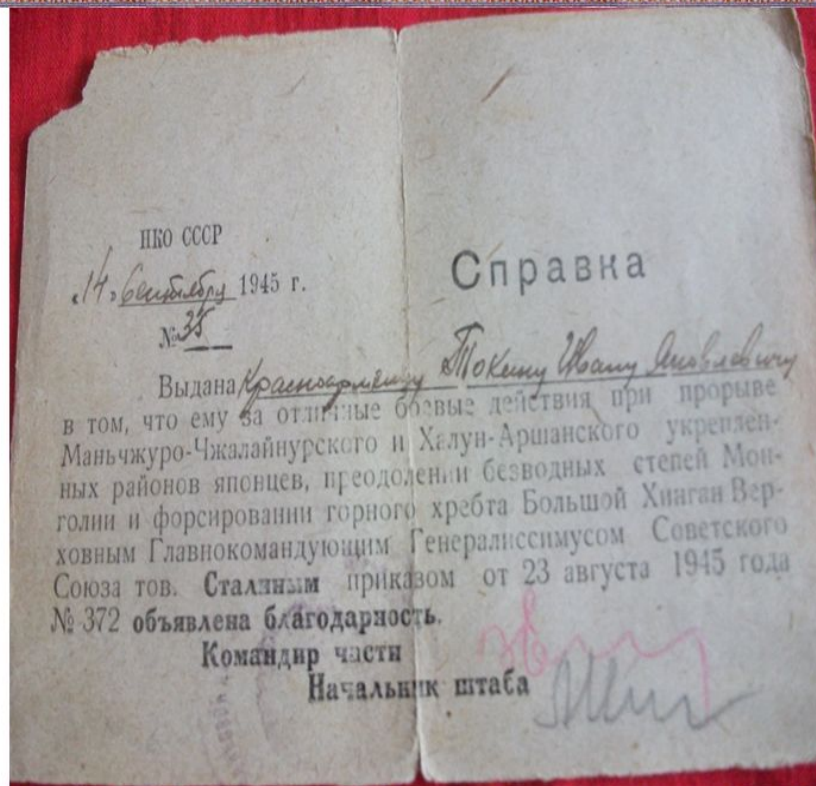 НКО СССР
„14„ Сентября 1945 г.
№ 35
Справка
Выдана Красноармейцу Токину Ивану Яковлевичу
в том, что ему за отличные боевые действия при прорыве
Маньчжуро-Чжалайнурского и Халун-Аршанского укреплен-
ных районов японцев, преодолении безводных степей Мон-
голии и форсировании горного хребта Большой Хинган Вер-
ховным Главнокомандующим Генералиссимусом Советского
Союза тов. Сталиным приказом от 23 августа 1945 года
№ 372 объявлена благодарность.
Командир части
Начальник штаба